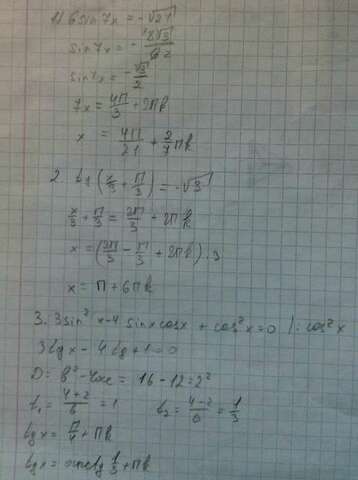 1) 6 sin 7x = -√27
sin 7x = - 3√3/6 2
sin 7x = - √3/2
7x = 4π/3 + 2πk
x = 4π/21 + 2/7 πk
2. tg (x/3 + π/3) = -√3
x/3 + π/3 = 2π/3 + 2πk
x = (2π/3 - π/3 + 2πk)·3
x = π + 6πk
3. 3sin² x - 4 sinx cosx + cos² x = 0 /: cos² x
3tg x - 4 tg + 1 = 0
D = b² - 4ac = 16 - 12 = 2²
t₁ = 4+2/6 = 1 t₂ = 4-2/6 = 1/3
tg x = π/4 + πk
tg x = arctg 1/3 + πk